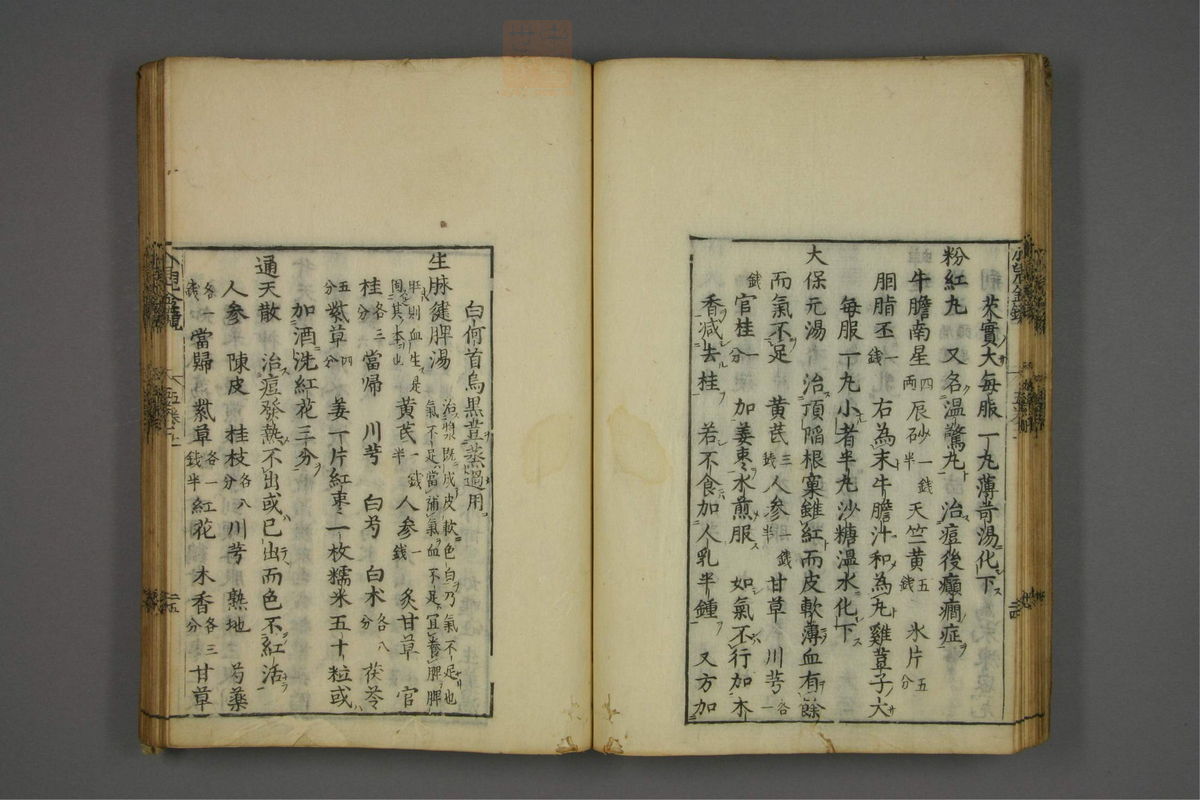 茨實大每服一丸薄苛湯化下
粉紅丸 又名温驚丸 治痘後癲癇症
牛膽南星四兩辰砂一錢半天竺黃五錢 氷片五分
胭脂丕一錢 右為末牛膽汁和為丸雞荳子大
每服一丸小者半丸沙糖温水化下
大保元湯 治頂陷根窠雖紅而皮軟薄血有餘
而氣不足 黃芪三錢人參一錢半甘草 川芎各一
錢官桂一分 加姜枣水煎服 如氣不行加木
香减去桂 若不食加人乳半鍾 又方加
白何首烏黒荳蒸過用
生脉健脾湯 治漿既成皮軟色白乃氣不足也氣不足當補氣血不足冝養脾脾
旺則血生是固其本也 黃芪一錢半人參一錢炙甘草 官
桂各三分當帰 川芎 白芍 白术各八分茯苓
五分紫草四分 姜一片紅枣一枚糯米五十粒或
加酒洗紅花三分
通天散 治痘發熱不出或已出而色不紅活
人參 陳皮 桂枝各八分川芎 熟地 芍藥
各一錢當歸 紫草各一錢半紅花 木香各三分甘草